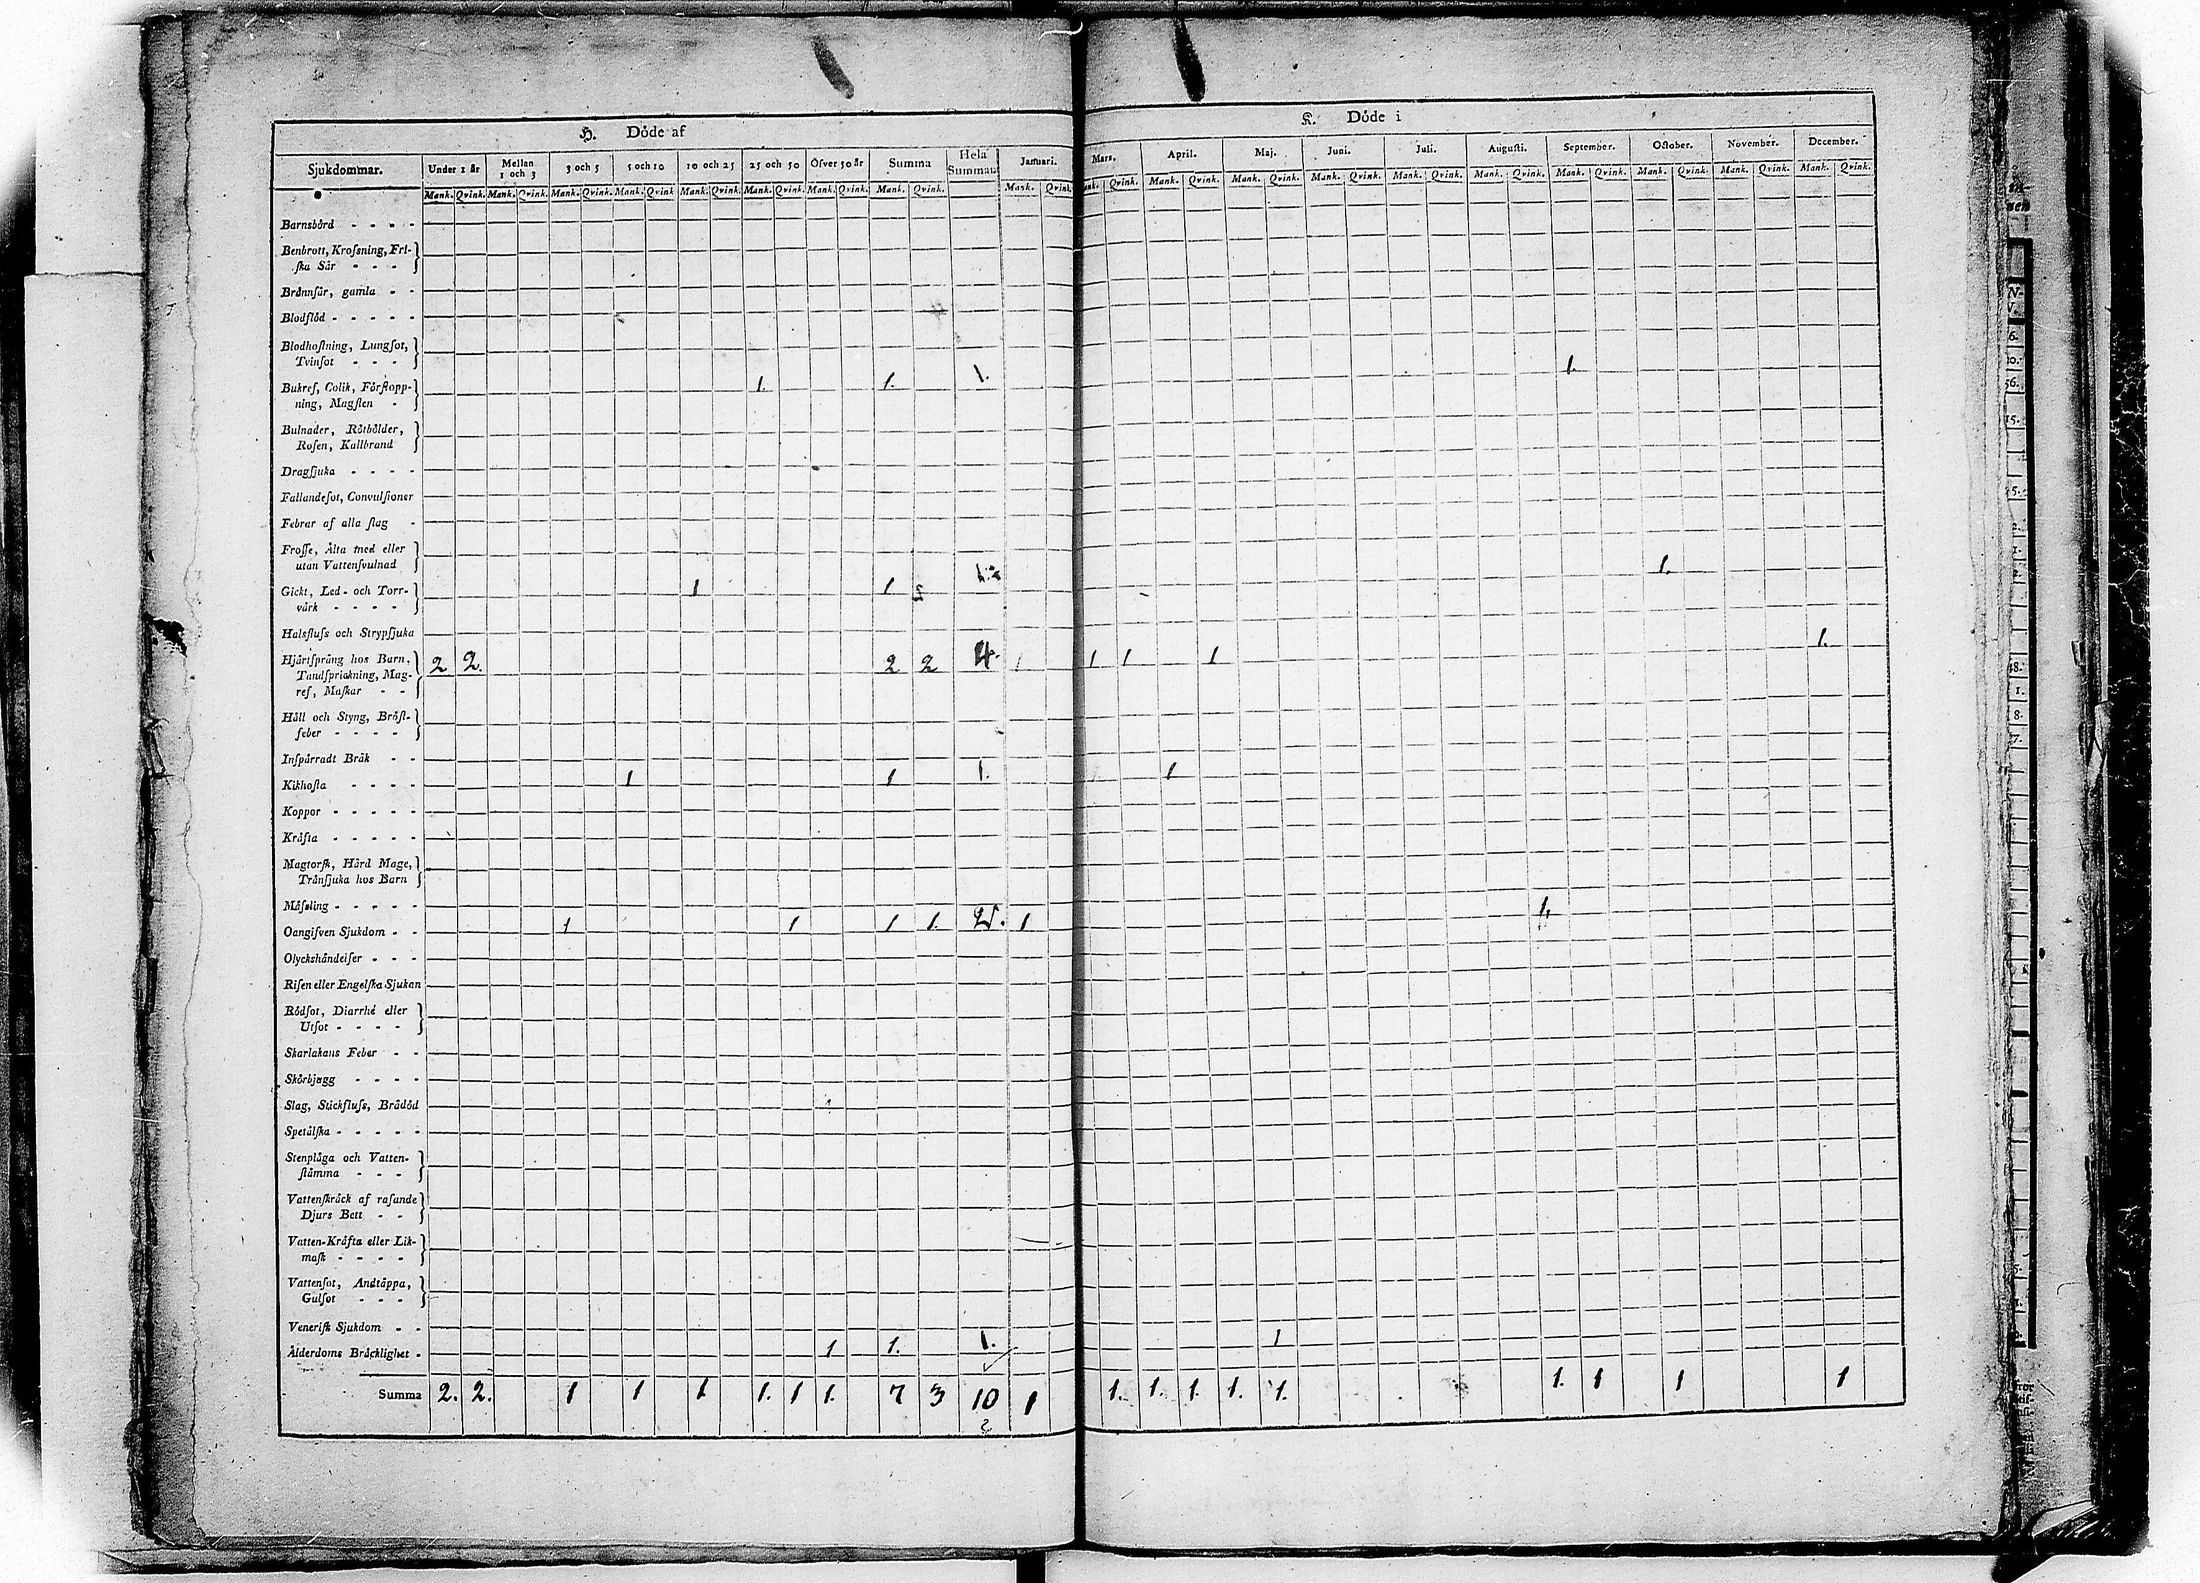 H. Döde af
K. Döde i
Sjukdommar. Under 1 år Mellan 1 och 3 3 och 5 5 och 10 10 och 25 25 och 50 Öfver 50 år Summa Hela Summan Januari. Mars. April. Maj. Juni. Juli. Augusti. September. October. November. December.
Mank. Qvink. Mank. Qvink. Mank. Qvink. Mank. Qvink Mank. Qvink. Mank. Qvink. Mank. Qvink. Mank. Qvink. Mank. Qvink. Qvink. Mank. Qvink. Mank. Qvink. Mank. Qvink. Mank. Qvink. Mank. Qvink. Mank. Qvink. Mank. Qvink. Mank. Qvink. Mank. Qvink.
Barnsbörd - - - -
Benbrott, Krosning, Fri-
ska Sår - - -
Brännsår, gamla - -
Blodflöd - - - - -
Blodhostning, Lungsot,
Tvinsot - - - 1.
Bukref, Colik, Förstopp- 1. 1. 1.
ning, Magsten -
Bulnader, Rötbölder,
Rosen, Kallbrand
Dragsjuka - - - -
Fallandesot, Convulsioner
Febrar af alla slag -
Frosse, Älta med eller
utan Vattensvulnad 1.
Gickt, Led- och Torr- 1 1 1.
värk - - - -
Halsfluss och Strypsjuka 1.
Hjärtspräng hos Barn, 2 2. 2 2 4. 1 1 1
Tandsprickning, Mag-
ref, Maskar - -
Håll och Styng, Bröst-
feber - - - -
Inspärradt Bråk - -
Kikhosta - - - - 1 1 1. 1
Koppor - - - - -
Kräfta - - - - -
Magtorsk, Hård Mage,
Trånsjuka hos Barn
Mässling - - - - - 1.
Oangifven Sjukdom - - 1 1 1 1. 2. 1
Olyckshändelser - - -
Risen eller Engelska Sjukan
Rödsot, Diarrhé eller
Utsot - - - -
Skarlakans Feber - -
Skörbjugg - - - -
Slag, Stickfluss, Brådöd
Spetälska - - - - -
Stenplåga och Vatten-
stämma - - -
Vattenskräck af rasande
Djurs Bett - -
Vatten-Kräfta eller Lik-
mask - - - -
Vattensot, Andtäppa,
Gulsot - - -
Venerisk Sjukdom - -
Ålderdoms Bräcklighet - 1 1. 1. 1
Summa 2. 2. 1 1 1 1. 1 1. 7 3 10 1 1. 1. 1. 1. 1. 1. 1 1 1